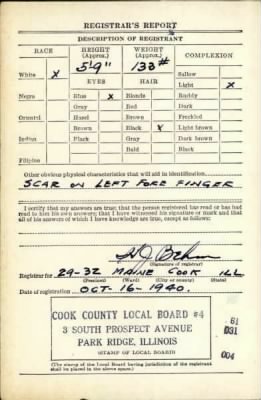 REGISTRAR'S REPORT
DESCRIPTION OF REGISTRANT
RACE HEIGHT (Approx.) WEIGHT (Approx.) COMPLEXION
5-9" 133#
White X EYES HAIR Sallow
Light X
Negro Blue X Blonde Ruddy
Gray Red Dark
Oriental Hazel Brown Freckled
Brown Black X Light brown
Indian Black Gray Dark brown
Bald Black
Filipino
Other obvious physical characteristics that will aid in identification
SCAR ON LEFT FORE FINGER
I certify that my answers are true; that the person registered has read or has had read to him his own answers; that I have witnessed his signature or mark and that all of his answers of which I have knowledge are true, except as follows:
(Signature of registrar)
Registrar for 29-32 MAINE COOK ILL
(Precinct) (Ward) (City or county) (State)
Date of registration OCT-16-1940.
COOK COUNTY LOCAL BOARD #4
3 SOUTH PROSPECT AVENUE
PARK RIDGE, ILLINOIS
(STAMP OF LOCAL BOARD)
61
031
004
(The stamp of the Local Board having jurisdiction of the registrant shall be placed in the above space.)